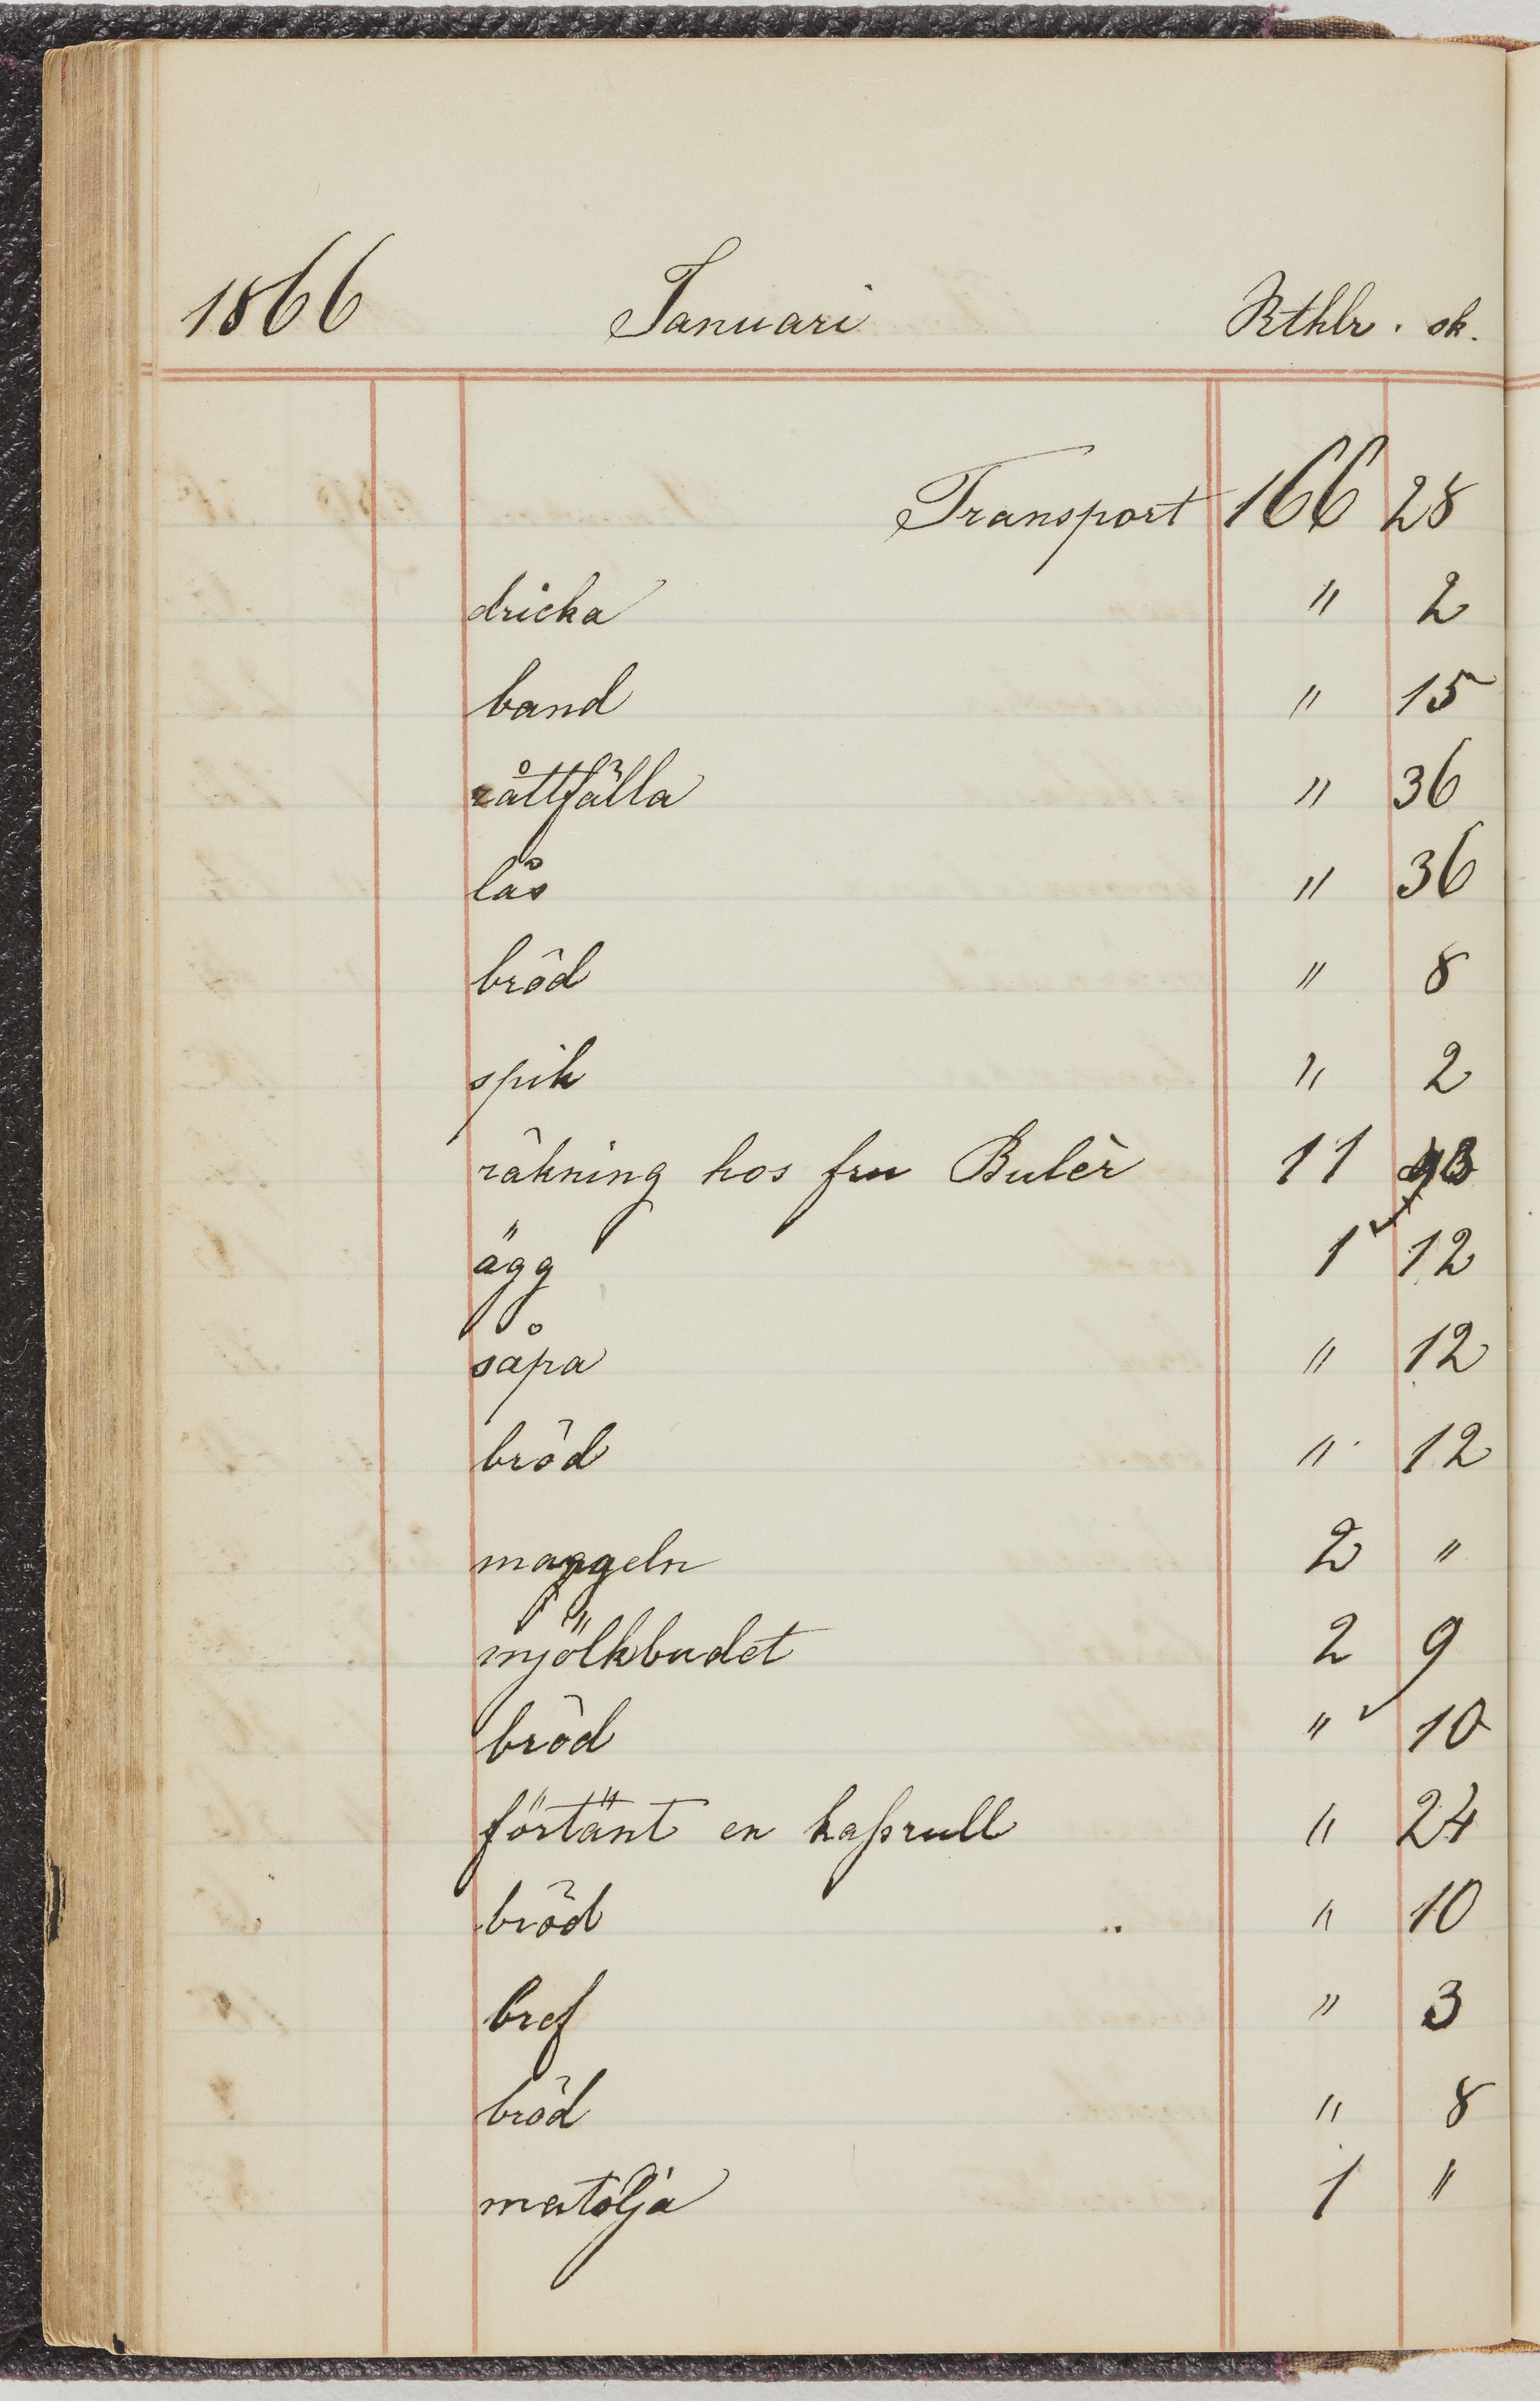 1866 Januari Rthlr. sk.
Transport 166 28
dricka " 2
band " 15
råttfälla " 36
lås " 36
bröd " 8
spik " 2
räkning hos fru Bulèr 11
ägg 1 12
såpa " 12
bröd " 12
mangeln 2 "
mjölkbudet 2 9
bröd " 10
förtänt en kaßrull " 24
bröd " 10
bref " 3
bröd " 8
matolja 1 "